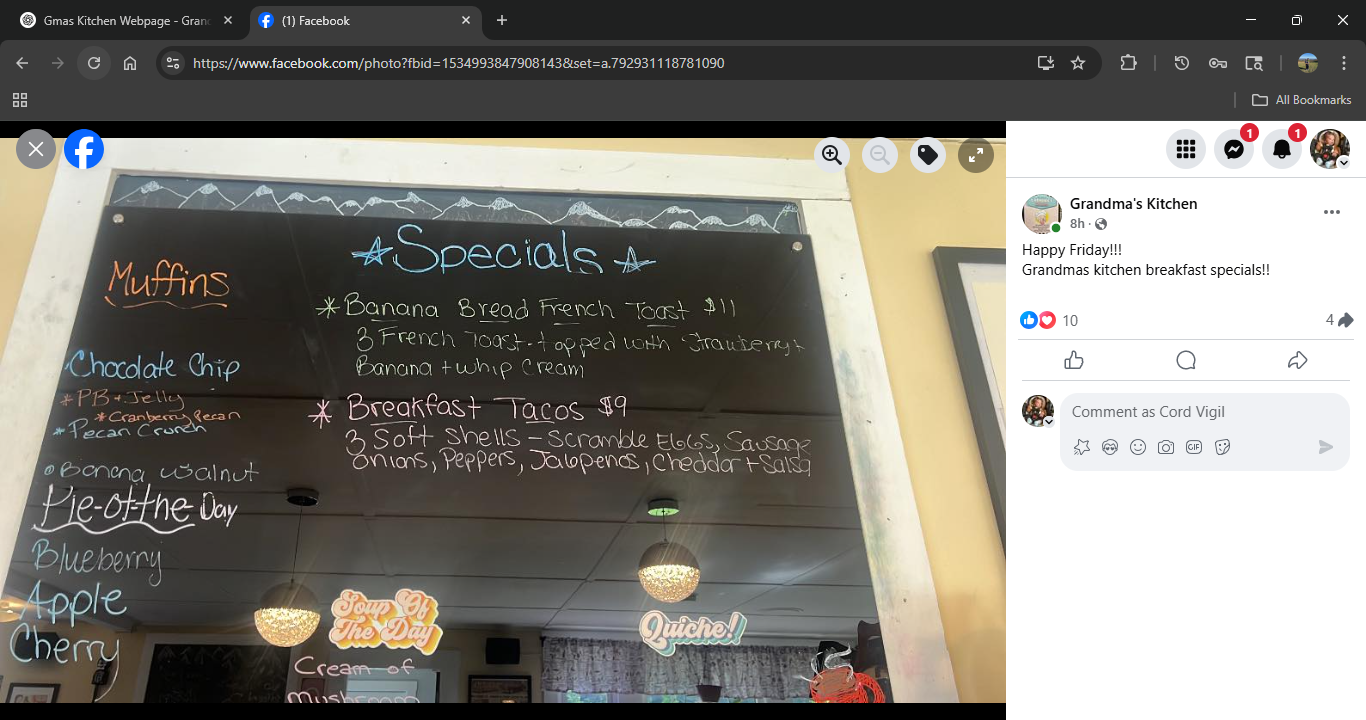 Gmas Kitchen Webpage - Gran
(1) Facebook
https://www.facebook.com/photo?fbid=1534993847908143&set=a.792931118781090
All Bookmarks
Muffins
Chocolate Chip
*PB + Jelly
*Cranberry Pecan
*Pecan Crunch
Banana Walnut
Pie-of-the Day
Blueberry
Apple
Cherry
Specials
*Banana Bread French Toast $11
3 French Toast-topped with Strawberry +
Banana + whip Cream
*Breakfast Tacos $9
3 Soft Shells - Scramble EGGS, Sausage
Onions, Peppers, Jalapenos, Cheddar + Salsa
Soup Of
The Day
Cream of
mushroom
Quiche!
1
1
Grandma's Kitchen
8h ·
Happy Friday!!!
Grandmas kitchen breakfast specials!!
10
4
Comment as Cord Vigil
GIF